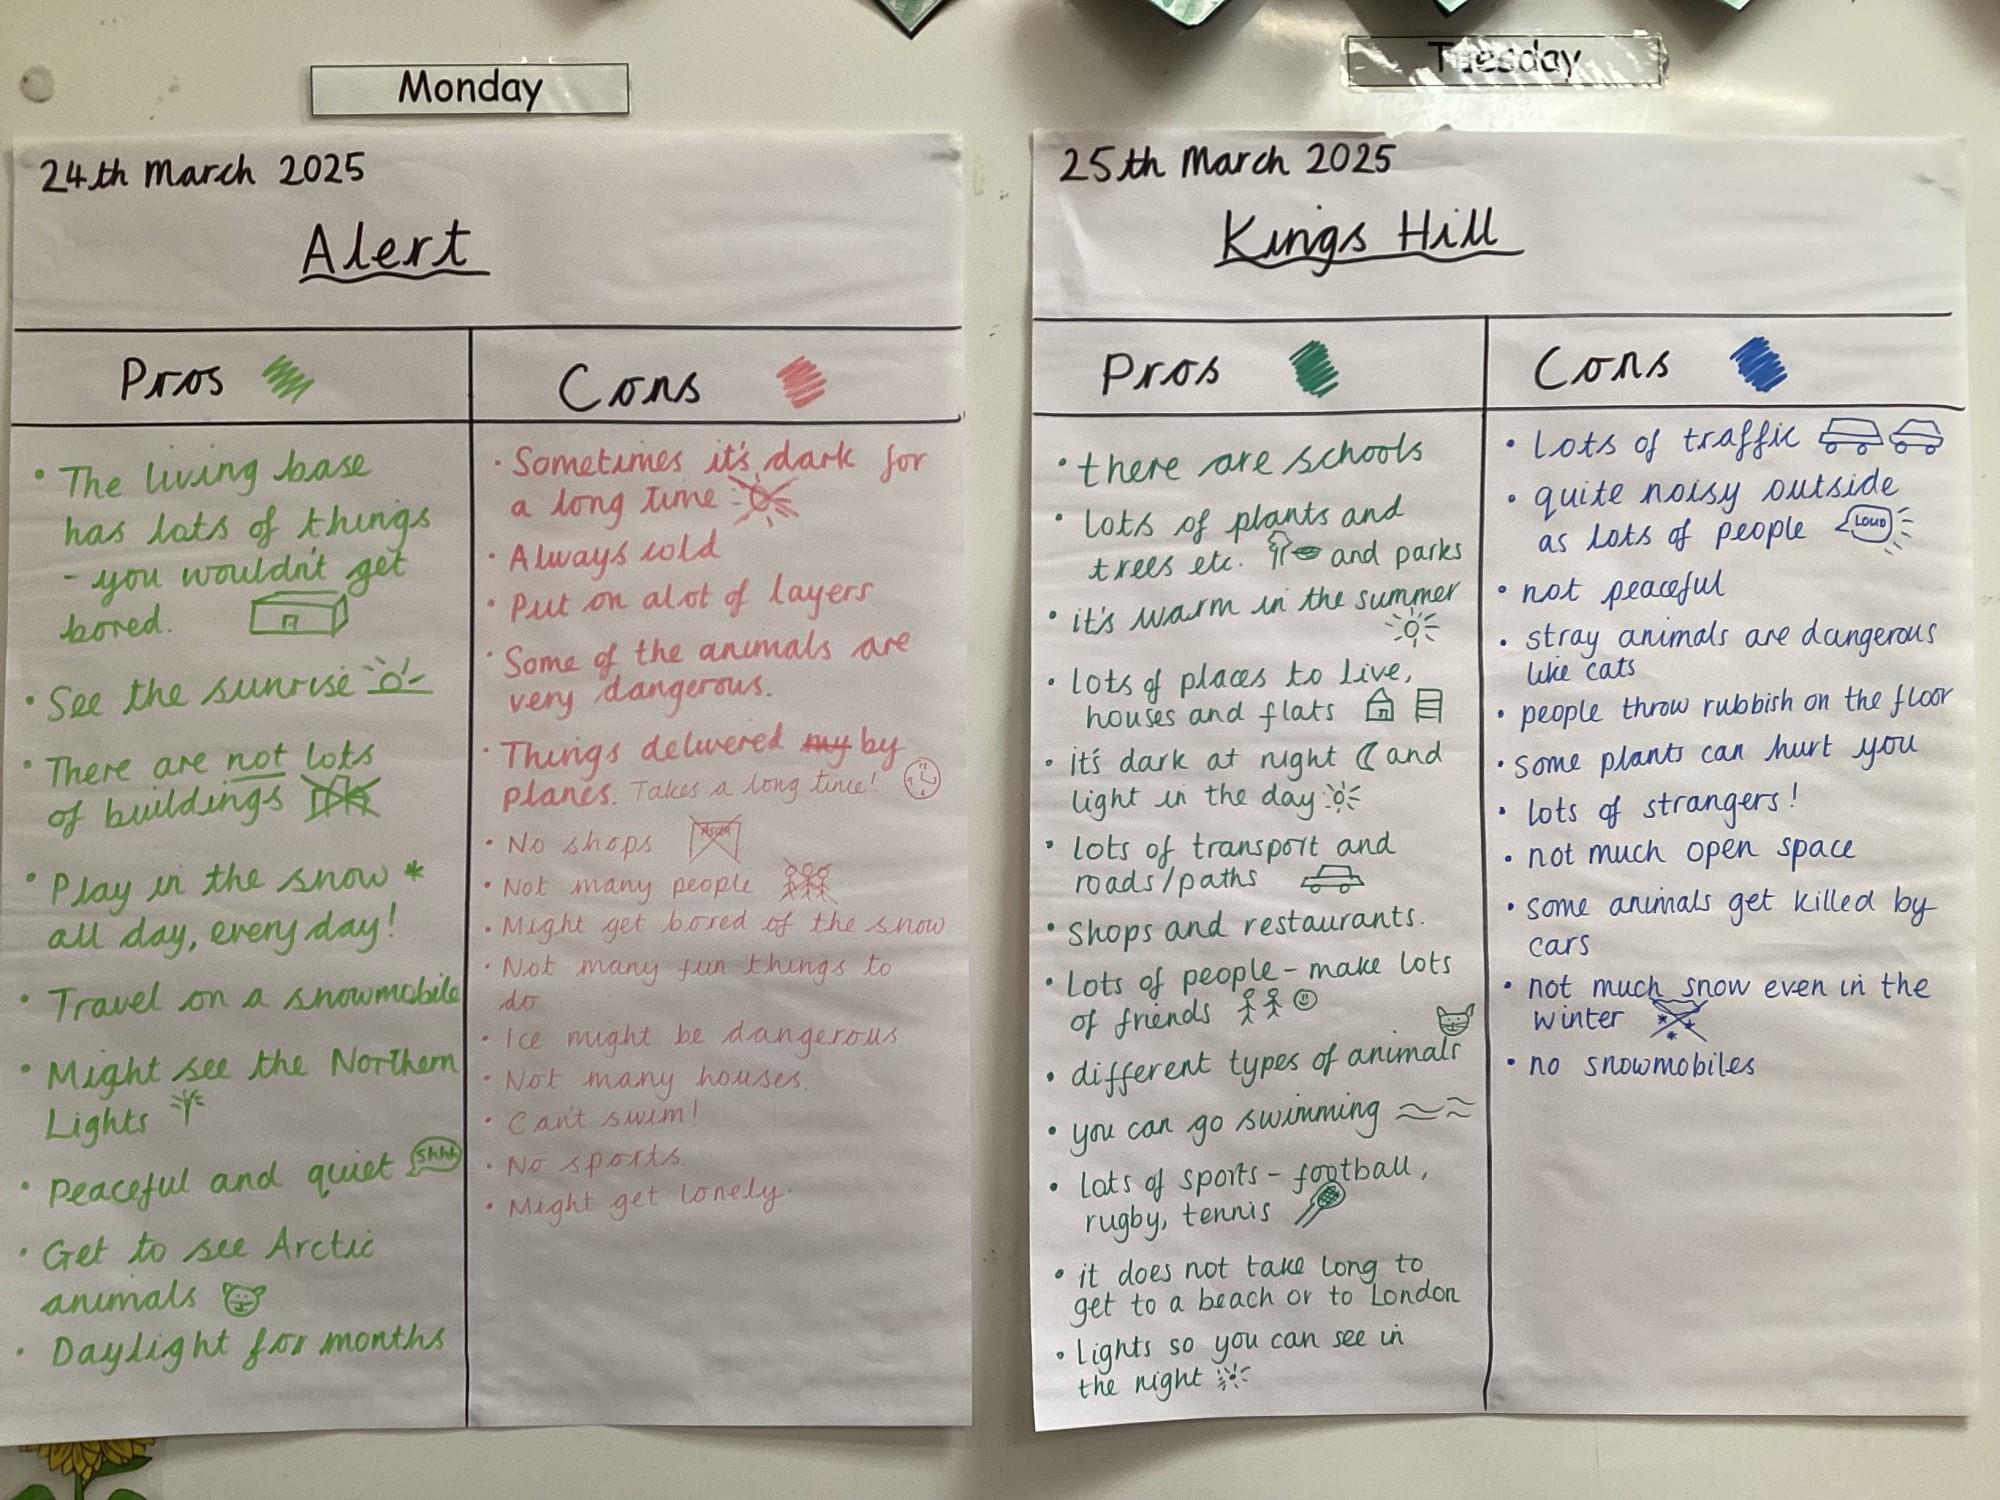 Monday
24th March 2025
Alert
Pros
• The living base
has lots of things
- you wouldn't get
bored.
• See the sunrise
• There are not lots
of buildings
• Play in the snow *
all day, every day!
• Travel on a snowmobile
• Might see the Northern
Lights
• Peaceful and quiet
Shhh
• Get to see Arctic
animals
• Daylight for months
Cons
• Sometimes it's dark for
a long time
• Always cold
• Put on alot of layers
• Some of the animals are
very dangerous.
• Things delivered my by
planes. Takes a long time!
• No shops
• Not many people
• Might get bored of the snow.
• Not many fun things to
do
• Ice might be dangerous.
• Not many houses.
• Can't swim!
• No sports
• Might get lonely.
Tuesday
25th March 2025
Kings Hill
Pros
• there are schools
• lots of plants and
trees etc. and parks
• it's warm in the summer
• lots of places to live,
houses and flats
• it's dark at night and
light in the day
• lots of transport and
roads/paths
• shops and restaurants.
• Lots of people - make lots
of friends
• different types of animals
• you can go swimming
• lots of sports - football,
rugby, tennis
• it does not take long to
get to a beach or to London
• Lights so you can see in
the night
Cons
• lots of traffic
• quite noisy outside
as lots of people
LOUD
• not peaceful
• stray animals are dangerous
like cats
• people throw rubbish on the floor
• some plants can hurt you
• lots of strangers!
• not much open space
• some animals get killed by
cars
• not much snow even in the
winter
• no snowmobiles